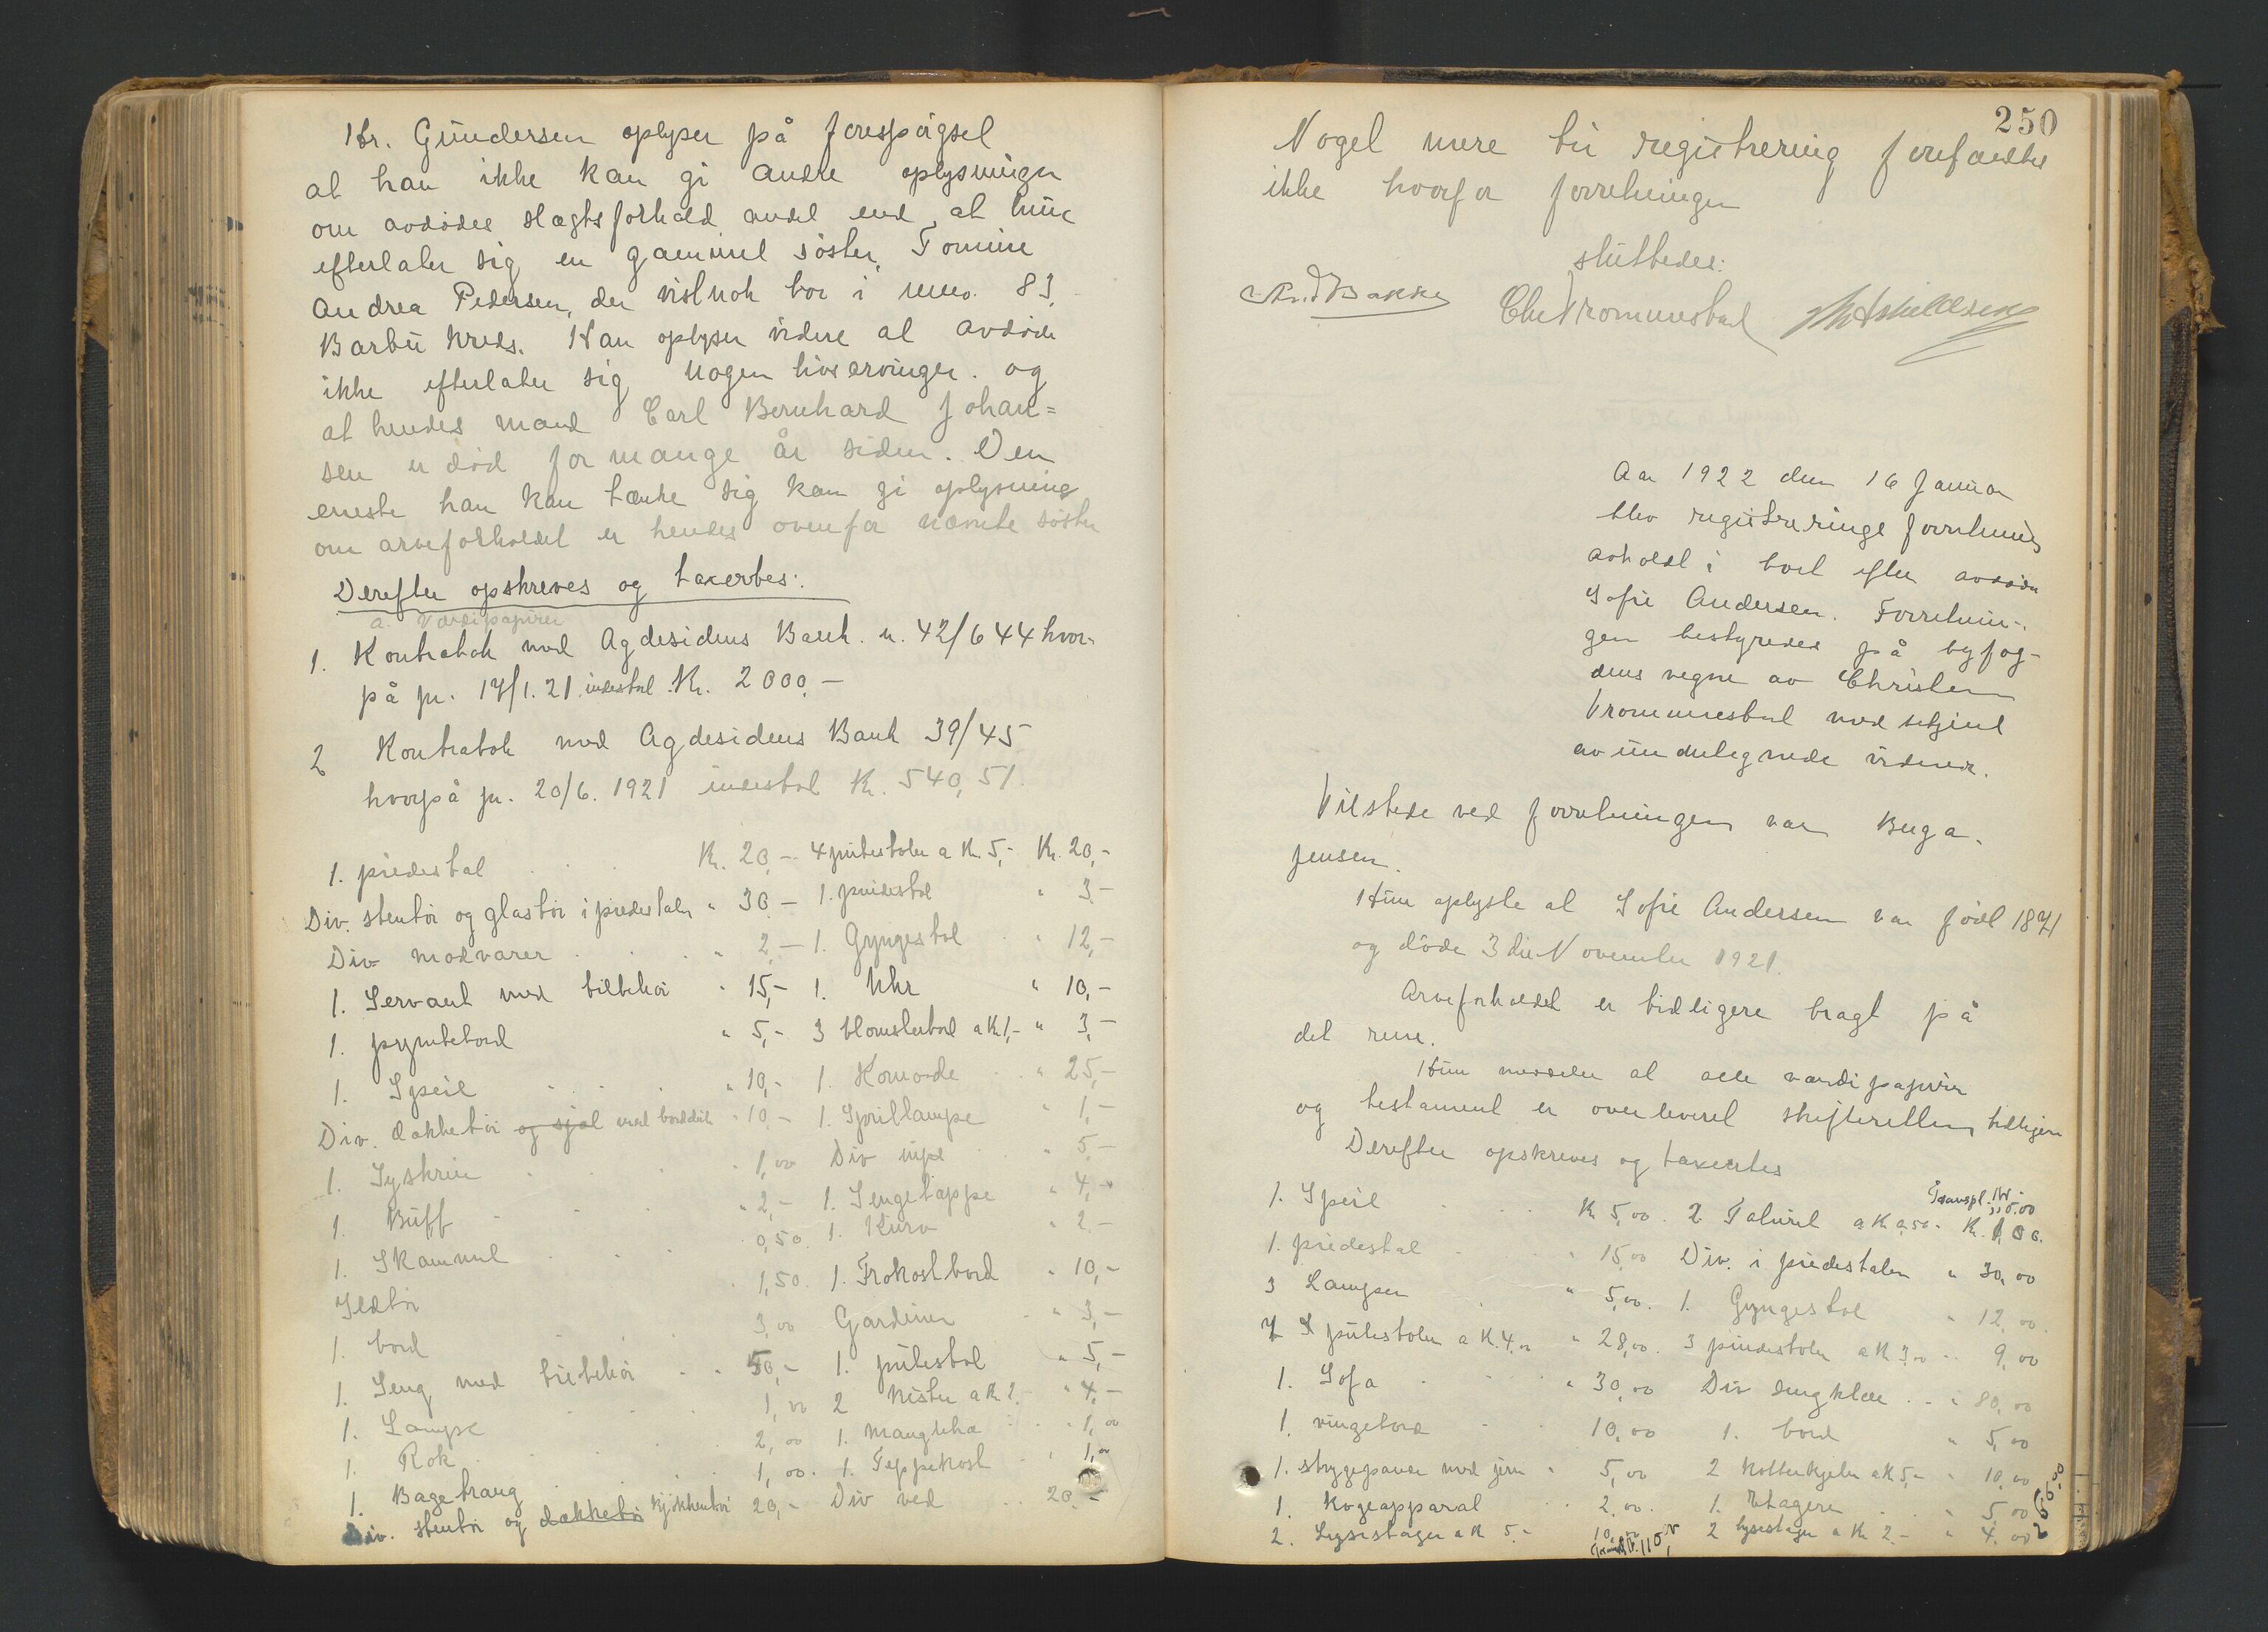 Hr. Gundersen oplyser på forespørgsel
at han ikke kan gi andre oplysninger
om avdødes slægtsforhold andet end at hun
efterlater sig en gammel søster, Tomine
Andrea Pedersen, der vistnok bor i mno. 83
Barbu kreds. Han oplyser videre at avdøde
ikke efterlater sig nogen livsarvinger. og
at hendes mand Carl Bernhard Johan=
sen er død for mange år siden. Den
eneste han kan tænke sig kan gi oplysning
om arveforholdet er hendes ovenfor nævnte søster
Derefter opskreves og taxertes:
a. Værdipapirer
1. Kontrabok med Agdesidens Bank. n. 42/644 hvor-
på pr. 17/1. 21. indestod Kr. 2000,-
2 Kontrabok med Agdesidens Bank 39/45
hvorpå pr. 20/6. 1921 indestod Kr. 540,51.
1. piedestal Kr. 20,- 4 pinnestoler a Kr. 5,- Kr. 20,-
Div. stentøi og glastøi i piedestalen " 30,- 1. pindestol " 3,-
Div matvarer " 2,- 1. Gyngestol " 12,-
1. Servant med tilbehør " 15,- 1. Uhr " 10,-
1. pyntebord " 5,- 3 blomsterbord a Kr 1,- " 3,-
1. Speil " 10,- 1. Komode " 25,-
Div. dækketøi og sjal med borddük " 10,- 1. Spritlampe " 1,-
1. Syskrin " 1,00 Div 5,-
1. Buff " 2,- 1. Sengetæppe " 4,-
1. Skammel 0,50. 1. Kurv " 2,-
Ildtøi 1,50. 1. Frokostbord " 10,-
1. bord 3,00 Gardiner " 3,-
1. Seng med tilbehør 50,- 1. putestol " 5,-
1. Lampe 1,00 2 Kister a Kr. 2,- " 4,-
1. Rok 2,00 1. mangletræ " 1,00
1. Bagetraug 1,00. 1. Teppekost " 1,00
Div. stentøi og dækketøi kjøkkentøi 20,- Div ved 20,-
250
Noget mere til registrering forefandtes
ikke hvorfor forretningen
sluttedes:
Bakke Chr Tromunestad
Aar 1922 den 16 Januar
blev registreringsforretning
avholdt i boet efter avdøde
Sofie Andersen. Forretnin-
gen bestyredes på byfog-
dens vegne av Christen
Tromunestad med tilkjend
av undertegnede vidner.
Tilstede ved forretningen var Berga.
Jensen.
Hun oplyste at Sofie Andersen var født 1841
og døde 3die November 1921.
Arveforholdet er tidligere bragt på
det rene.
Hun meddeler at alle værdipapirer
og testament er overleveret skifteretten tidligere
Derefter opskreves og taxertes
Transpt. Kr. 110.00
1. Speil Kr 5,00. 2 Taburet a Kr 0,50. Kr. 1,00.
1. piedestal " 15,00 Div. i piedestalen " 30,00
3 Lamper " 5,00. 1. Gyngestol " 12,00.
7 putestoler a Kr. 4,00 " 28,00. 3 pindestoler a Kr 3,00 " 9,00
1. Sofa " 30,00 Div sengklær " 80,00
1. vingebord 10,00 1. bord " 5,00
1. strygepande med jern " 5,00 2 Kobberkjeler a Kr 5,- " 10,00
1. Kogeapparat 2,00. 1. Etagere " 5,00
2. Lysestager a Kr 5.- 10,00 2 lysestager a Kr 2.- " 4,00
Transpt. Kr. 110,00
266,00